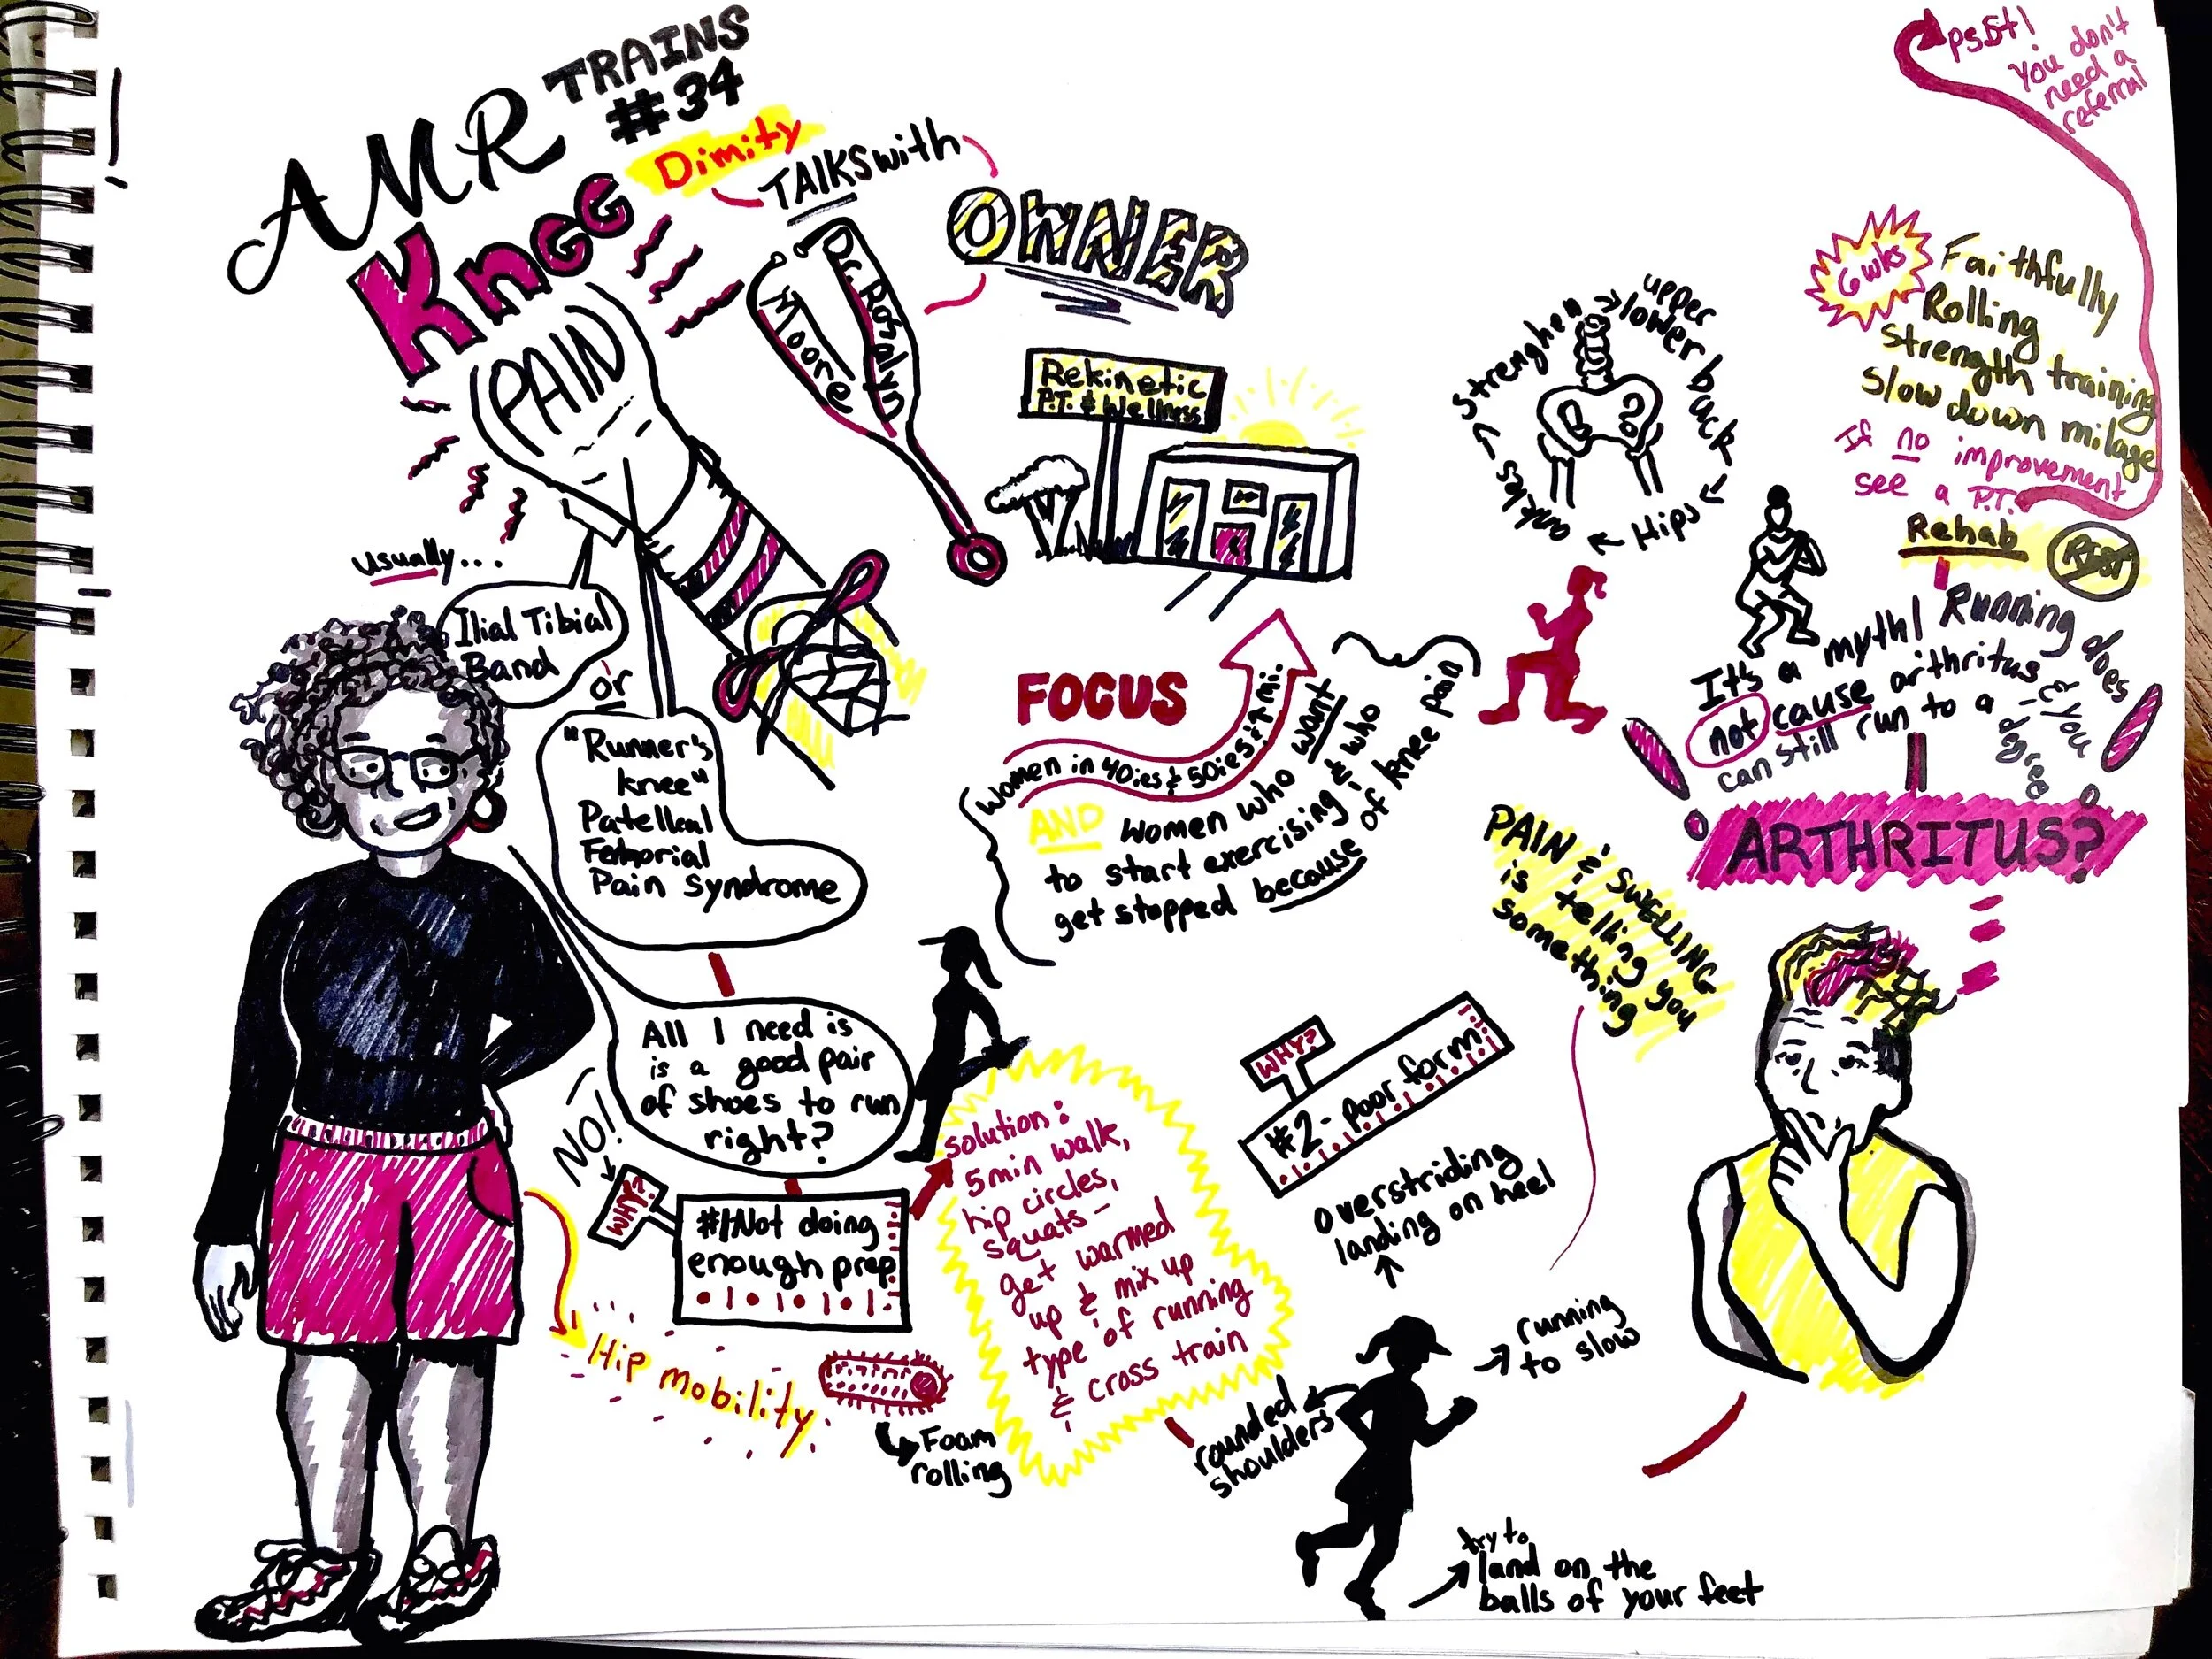 AMR TRAINS
#34
Knee
PAIN
Dimity
TALKS with
Dr. Rosalyn
Moore
OWNER
Rekinetic
P.T. & Wellness
usually...
Ilial Tibial
Band
or
"Runner's
knee"
Patelleal
Femorial
Pain Syndrome
All I need is
is a good pair
of shoes to run
right?
NO!
WHY?
#1 Not doing
enough prep
Hip mobility
Foam
rolling
solution:
5 min walk,
hip circles,
squats -
get warmed
up & mix up
type of running
& cross train
FOCUS
Women in 40ies & 50ies ↑ mi.
AND women who want
to start exercising & who
get stopped because of knee pain
WHY?
#2 - Poor form
Overstriding
landing on heel
running
to slow
rounded
shoulders
try to
land on the
balls of your feet
Strenghen
upper
lower back
Hips
ankles
psst!
You don't
need a
referral
6 wks
Faithfully
Rolling
Strength training
Slow down milage
If no improvement
see a P.T.
Rehab
Rest
It's a myth! Running does
not cause arthritus & you
can still run to a degree
ARTHRITUS?
PAIN & SWELLING
is telling you
something